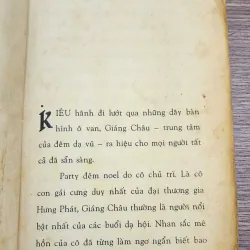 KIÊU hãnh đi lướt qua những dãy bàn
hình ô van, Giáng Châu – trung tâm
của đêm dạ vũ – ra hiệu cho mọi người tất
cả đã sẵn sàng.
Party đêm noel do cô chủ trì. Là cô
con gái cưng duy nhất của đại thương gia
Hưng Phát, Giáng Châu thường là người nổi
bật nhất của các buổi dạ hội. Nhan sắc mê
hồn của cô đã từng làm ngơ ngẩn biết bao